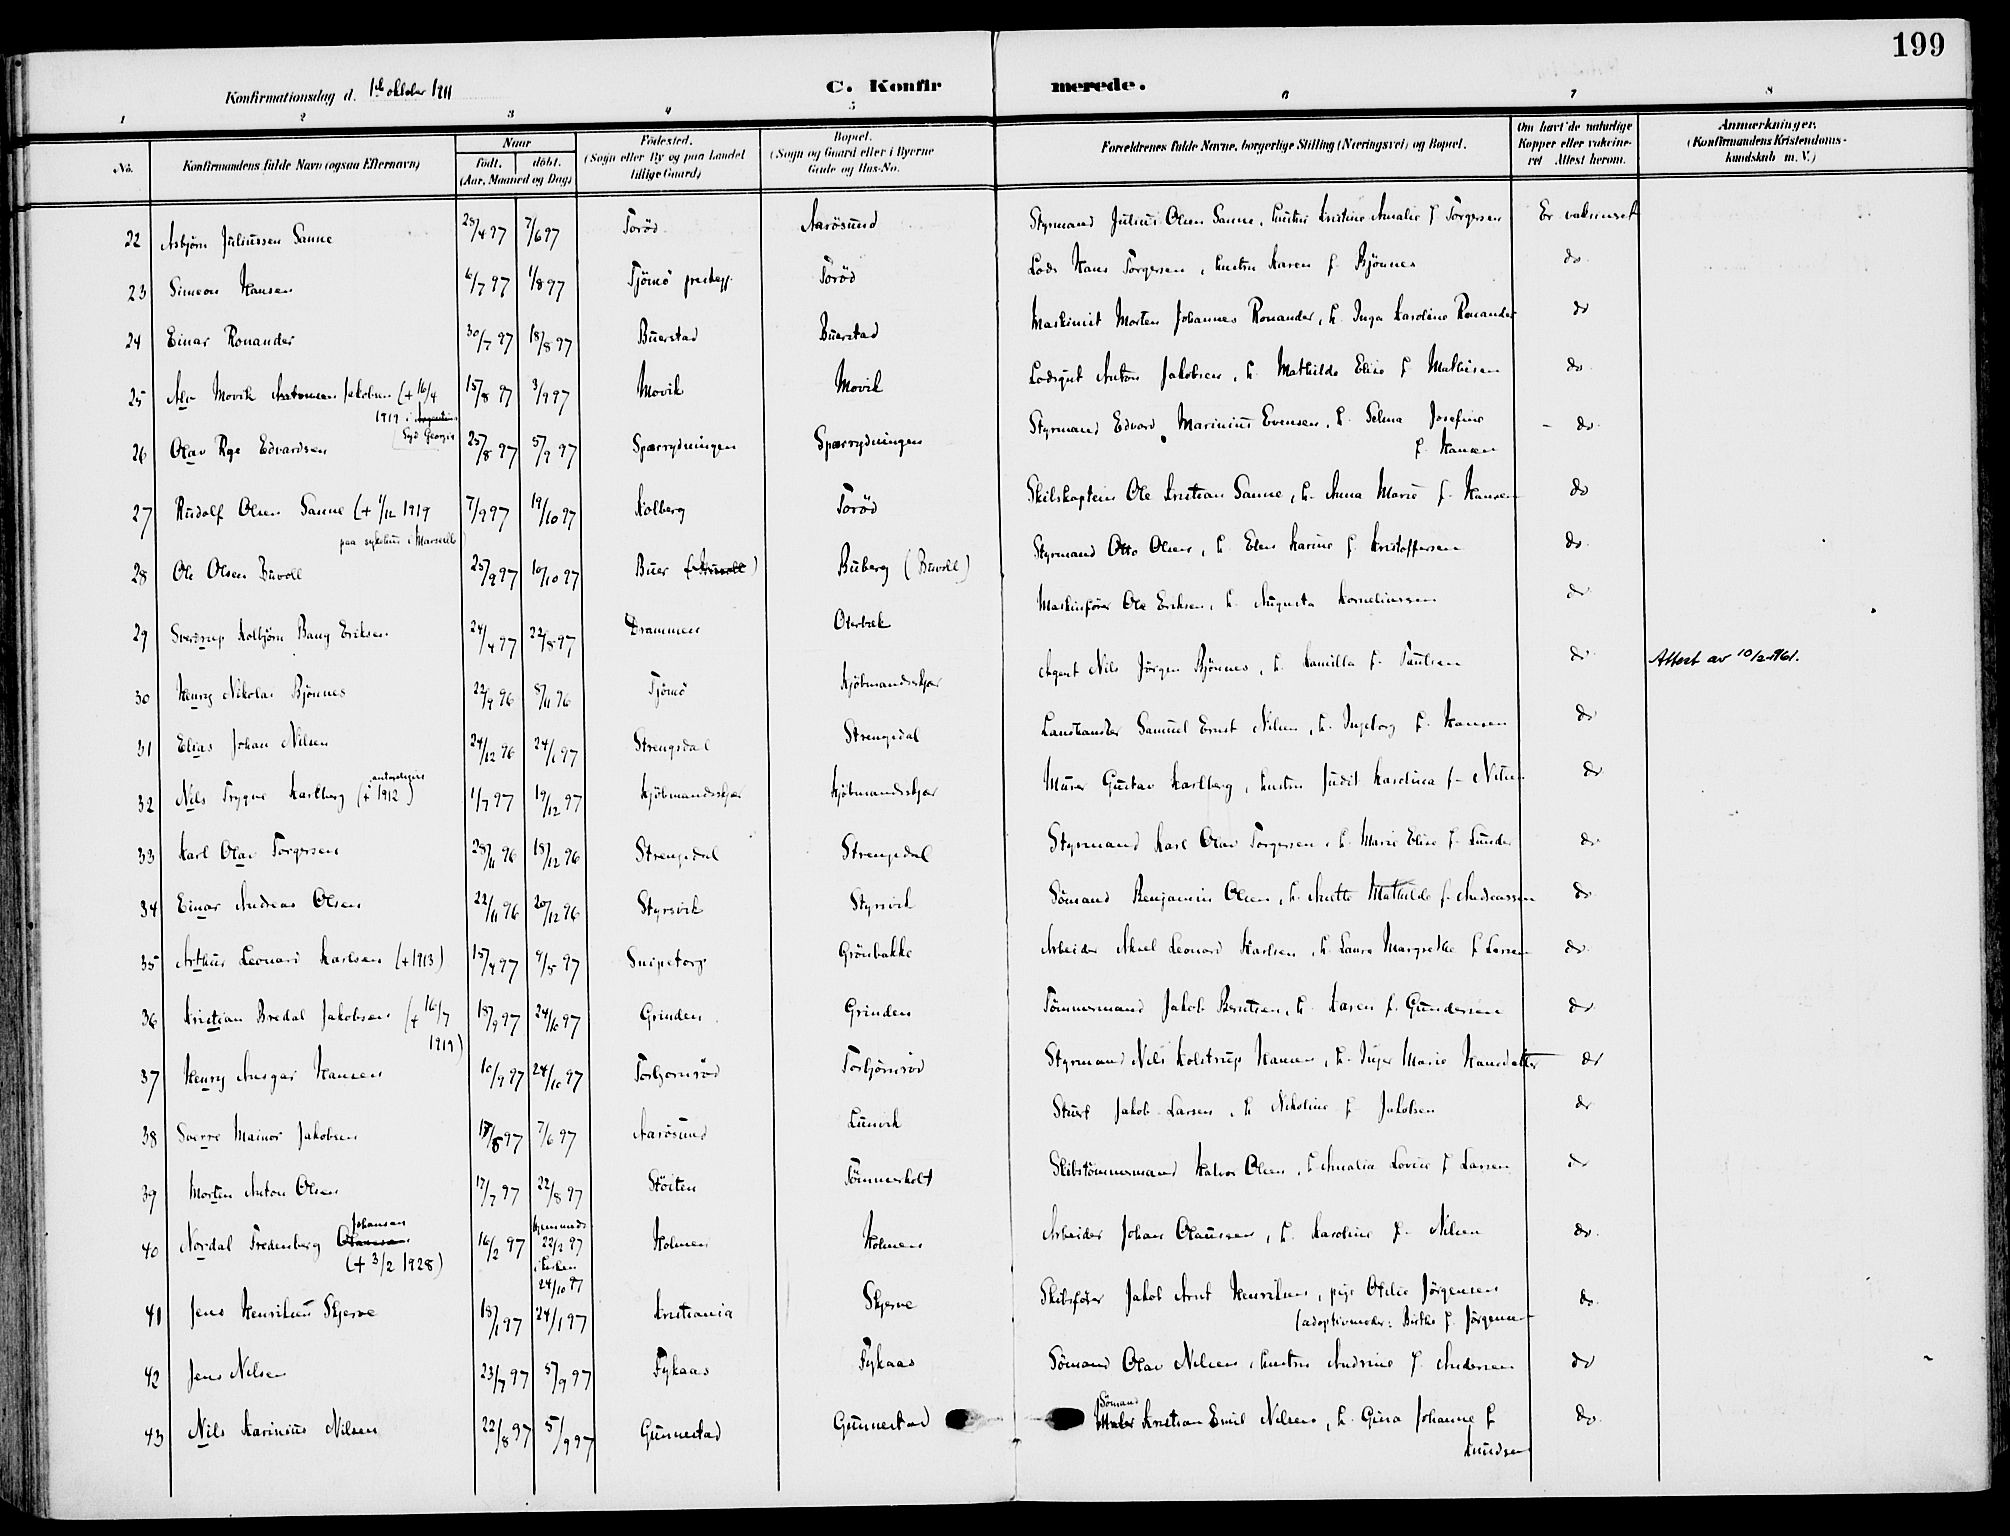 199
Konfirmationsdag d. 1ste oktober 1911 C. Konfirmerede.
1 2 3 4 5 6 7 8
No. Konfirmandens fulde Navn (ogsaa Efternavn) Naar født. døbt. (Aar, Maaned og Dag) Fødested. (Sogn eller By og paa Landet tillige Gaard) Bopæl. (Sogn og Gaard eller i Byerne Gade og Hus-No. Forældrenes fulde Navne, borgerlige Stilling (Næringsvei) og Bopæl. Om havt de naturlige Kopper eller vakcineret Attest herom. Anmærkninger. (Konfirmandens Kristendomskundskab m. V.)
22 Asbjørn Juliussen Sanne 28/4 97 7/6 97 Torød Aarøsund Styrmand Julius Olsen Sanne, hustru Kristine Amalie f. Torgersen Er vaksinert
23 Simeon Hansen 6/7 97 1/8 97 Tjømø prestegj. Torød Lods Hans Torgersen, hustru Karen f. Bjønnes do.
24 Einar Ronander 30/7 97 18/8 97 Buerstad Buerstad Maskinist Morten Johannes Ronander, h. Inga Karoline Ronander do
25 Alv Movik Antonsen Jakobsen (+ 16/4 15/8 97 3/9 97 Movik Movik Lodsgut Anton Jakobsen, h. Mathilde Elise f. Mathisen do.
1919 i Argentina
Syd Georgia
26 Olav Roge Edvardsen 25/8 97 5/9 97 Spærrydningen Spærrydningen Styrmand Edvard Marinius Evensen, h. Selma Josefine - do.
f. Hansen
27 Rudolf Olsen Sanne (+ 1/12 1919 7/9 97 19/10 97 Kolberg Torød Skibskaptein Ole Kristian Sanne, h. Anna Marie f. Hansen do
paa sykehus i Marseille)
28 Ole Olsen Buvoll 25/9 97 10/10 97 Buer (Buvoll) Buberg (Buvoll) Styrmand Otto Olsen, h. Elen Karine f. Kristoffersen do.
29 Sverdrup Kolbjørn Bang Eriksen 24/4 97 22/8 97 Drammen Oterbæk Maskinfører Ole Eriksen, h. Augusta Korneliussen do
30 Henry Nikolai Bjønnes 22/9 96 8/11 96 Tjømø Kjøbmandsskjær Agent Nils Jørgen Bjønnes, h. Kamilla f. Paulsen do Attest av 10/2-1961.
31 Elias Johan Nilsen 24/12 96 24/1 97 Strengsdal Strengsdal Samuel Ernst Nilsen, h. Ingeborg f. Hansen do
32 Nils Trygve Karlberg (+ 1912) 1/7 97 19/12 97 Kjøbmandsskjær Kjøbmandsskjær Murer Gustav Karlberg, hustru Judit Karolina f. Nilsen do
33 Karl Olav Torgersen 28/11 96 18/12 96 Strengsdal Strengsdal Styrmand Karl Olav Torgersen, h. Marie Elise f. Lunde do
34 Einar Andreas Olsen 22/11 96 20/12 96 Styrsvik Styrsvik Sømand Benjamin Olsen, h. Anette Mathilde f. Andreassen do
35 Arthur Leonard Karlsen (+ 1913) 15/4 97 9/5 97 Snipetorp Grønbakke Arbeider Aksel Leonard Karlsen, h. Laura Margrethe f. Larsen do.
36 Kristian Bredal Jakobsen (+ 16/7 18/9 97 24/10 97 Grinden Grinden Tømmermand Jakob Berntsen, h. Karen f. Gundersen do
1919)
37 Henry Ansgar Hansen 10/9 97 24/10 97 Torbjørnrød Torbjørnrød Styrmand Nils Kolstrup Hansen, h. Inger Marie Hansdatter do
38 Sverre Mainor Jakobsen 17/5 97 7/6 97 Aarøsund Lunvik Stuert Jakob Larsen, h. Nikoline f. Jakobsen do
39 Morten Anton Olsen 17/7 97 22/8 97 Støiten Tømmerholt Skibstømmermand Halvor Olsen, h. Amalia Lovise f. Larsen do
Johansen hjemmedt
40 Nordal Fredenberg Olaussen 16/2 97 22/2 97 Holmen Holmen Arbeider Johan Olaussen, h. Karoline f. Nilsen do.
(+ 3/2 1928) i kirken
24/10 97
41 Jens Henriksen Skjerve 18/1 97 24/1 97 Kristiania Skjerve Skibsfører Jakob Arnt Henriksen, pige Otilie Jørgensen do.
(adoptivmoder: Birthe f. Jørgensen
42 Jens Nilsen 23/7 97 5/9 97 Fykaas Fykaas Sømand Olav Nilsen, hustru Andrine f. Andersen do
Sømand
43 Nils Karinius Nilsen 22/8 97 5/9 97 Gunnestad Gunnestad Maler Kristian Emil Nilsen, h. Gina Johanne f. do.
Knudsen